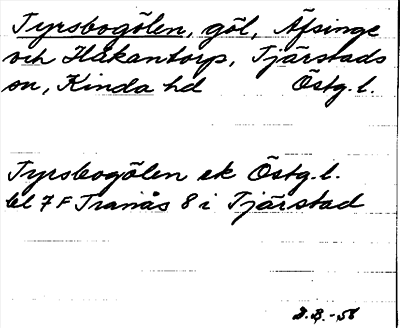 Tyrsbogölen, göl, Äfsinge
och Håkantorp, Tjärstads
sn, Kinda hd Östg. l.
Tyrsbogölen ek Östg. l.
bl 7 F Tranås 8 i Tjärstad
D.B.-56